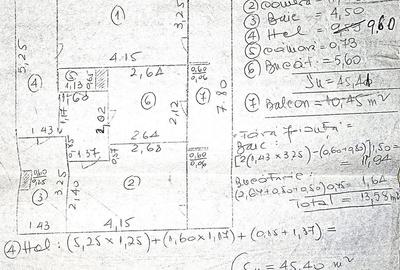 ①
3,25
② camera
③ Baie = 4,50
④ Hol = 9,60
⑤ cămară = 0,73
⑥ Bucăt. = 5,60
Su = 45,41
⑦ Balcon = 10,45 m²
5,25
4.15
④
⑤
1,13
0,65
2,64
0,60
0,06
1,68
⑥
⑦
7.80
1,17
2,02
2,12
1 43
2 64
2,63
1 37
0,60
0,06
0,60
3,25
③
2,40
②
1 43
4,15
Baie:
[2(1,43 x 3,25) - (0,60 x 0,80)] 1,50 =
= 11,94
Bucătărie:
1,64
Total = 13,58 m²
④ Hol: (5,25 x 1,25) + (1,60 x 1,17) + (0,15 + 1,37) =
Su = 45,40 m²